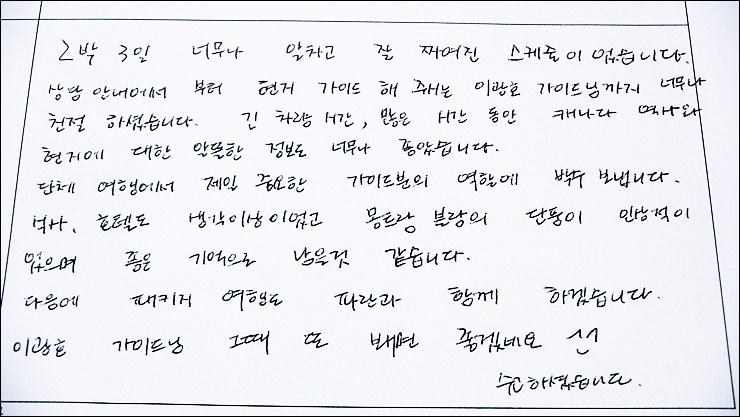 2박 3일 너무나 알차고 잘 짜여진 스케줄이 었습니다.
상담 안내에서 부터 현거 가이드 해 주시는 이광호 가이드님까지 너무나
친절 하셨습니다. 긴 차량 시간, 많은 시간 동안 캐나다 역사와
현지에 대한 알뜰한 정보도 너무나 좋았습니다.
단체 여행에서 제일 중요한 가이드분의 역할에 박수 보냅니다.
식사, 호텔도 생각이상 이었고 몽트랑 블랑의 단풍이 인상적이
었으며 좋은 기억으로 남을것 같습니다.
다음에 패키지 여행도 파란과 함께 하겠습니다.
이광호 가이드님 그때 또 뵈면 좋겠네요 ^^
수고하셨습니다.